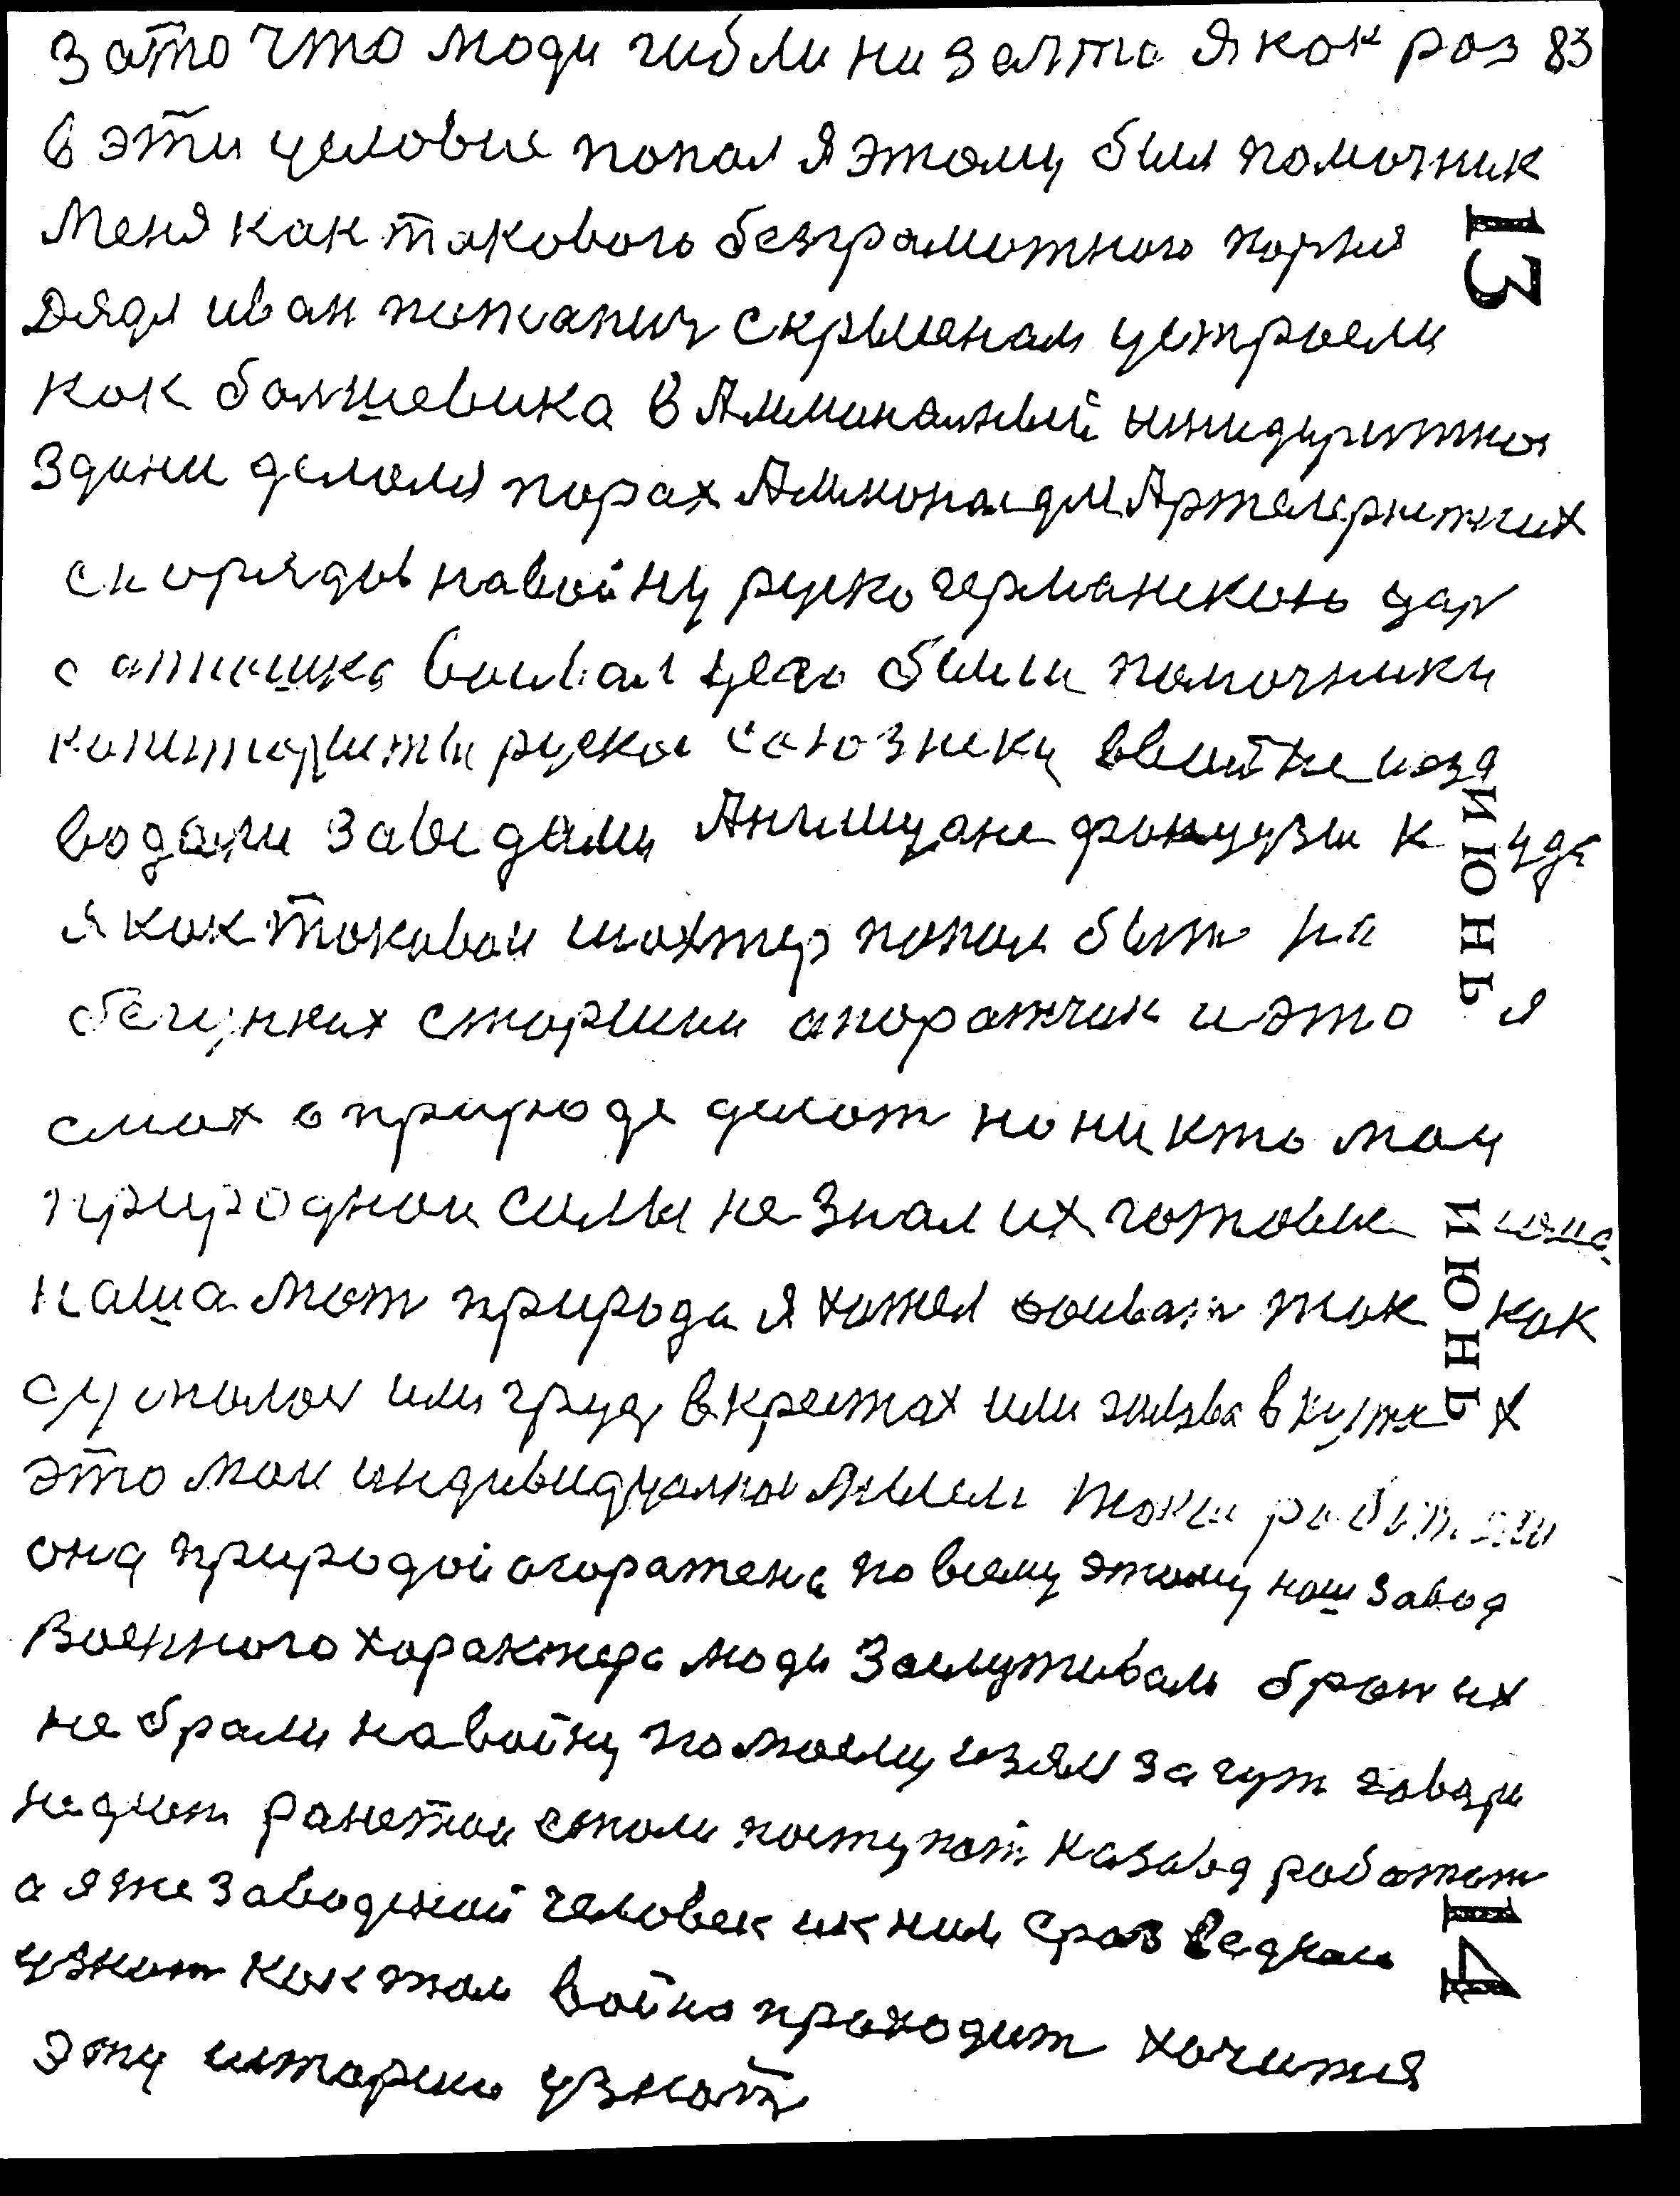 зато что люди гибли низалта я как раз 83
в эти условие попал я этому был помочник
Меня как такового безграмотного парня
Дядя иван потапич скрыпеном устроели
как балшевика в Аммоналный
здани делали порах Аммонал для Артелеристких
снорядов навойну руско германскою цар
с атишка воивал его были помочники
копиталисты руские саюзники
водами заведали Англичане французы куда
я как токовой шохтер попал быть на
бегунках старшии апоратчик и это я
смог о природе делат но никто мои
природнои силы не знал их готовие
наша мат природа я хотел воиват так как
аполои или груд в крестах или голова в кустах
это мои индивидуалнои мысли токи работали
она природои огоражена по всему этому наш завод
Военного характера люди заслуживали брон их
не брали навойну по моему изям загут говари
недют ранетои стали поступат назавод работат
а я же заводской человек ик ним с разведкаи
узнат как там война проходит хочится
эту историю узнат
13
ИЮНЬ
ИЮНЬ
14